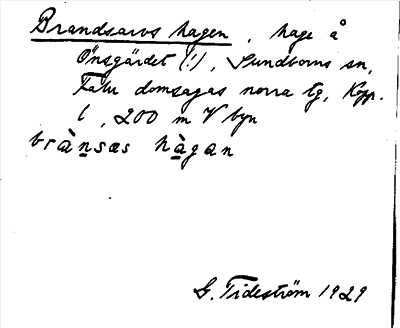 Brandsarvs hagen, hage å
Önsgärdet (!), Sundborns sn,
Falu domsagas norra tg, Kopp.
l, 200 m V byn
brànsæs hàgan
G. Tideström 1929